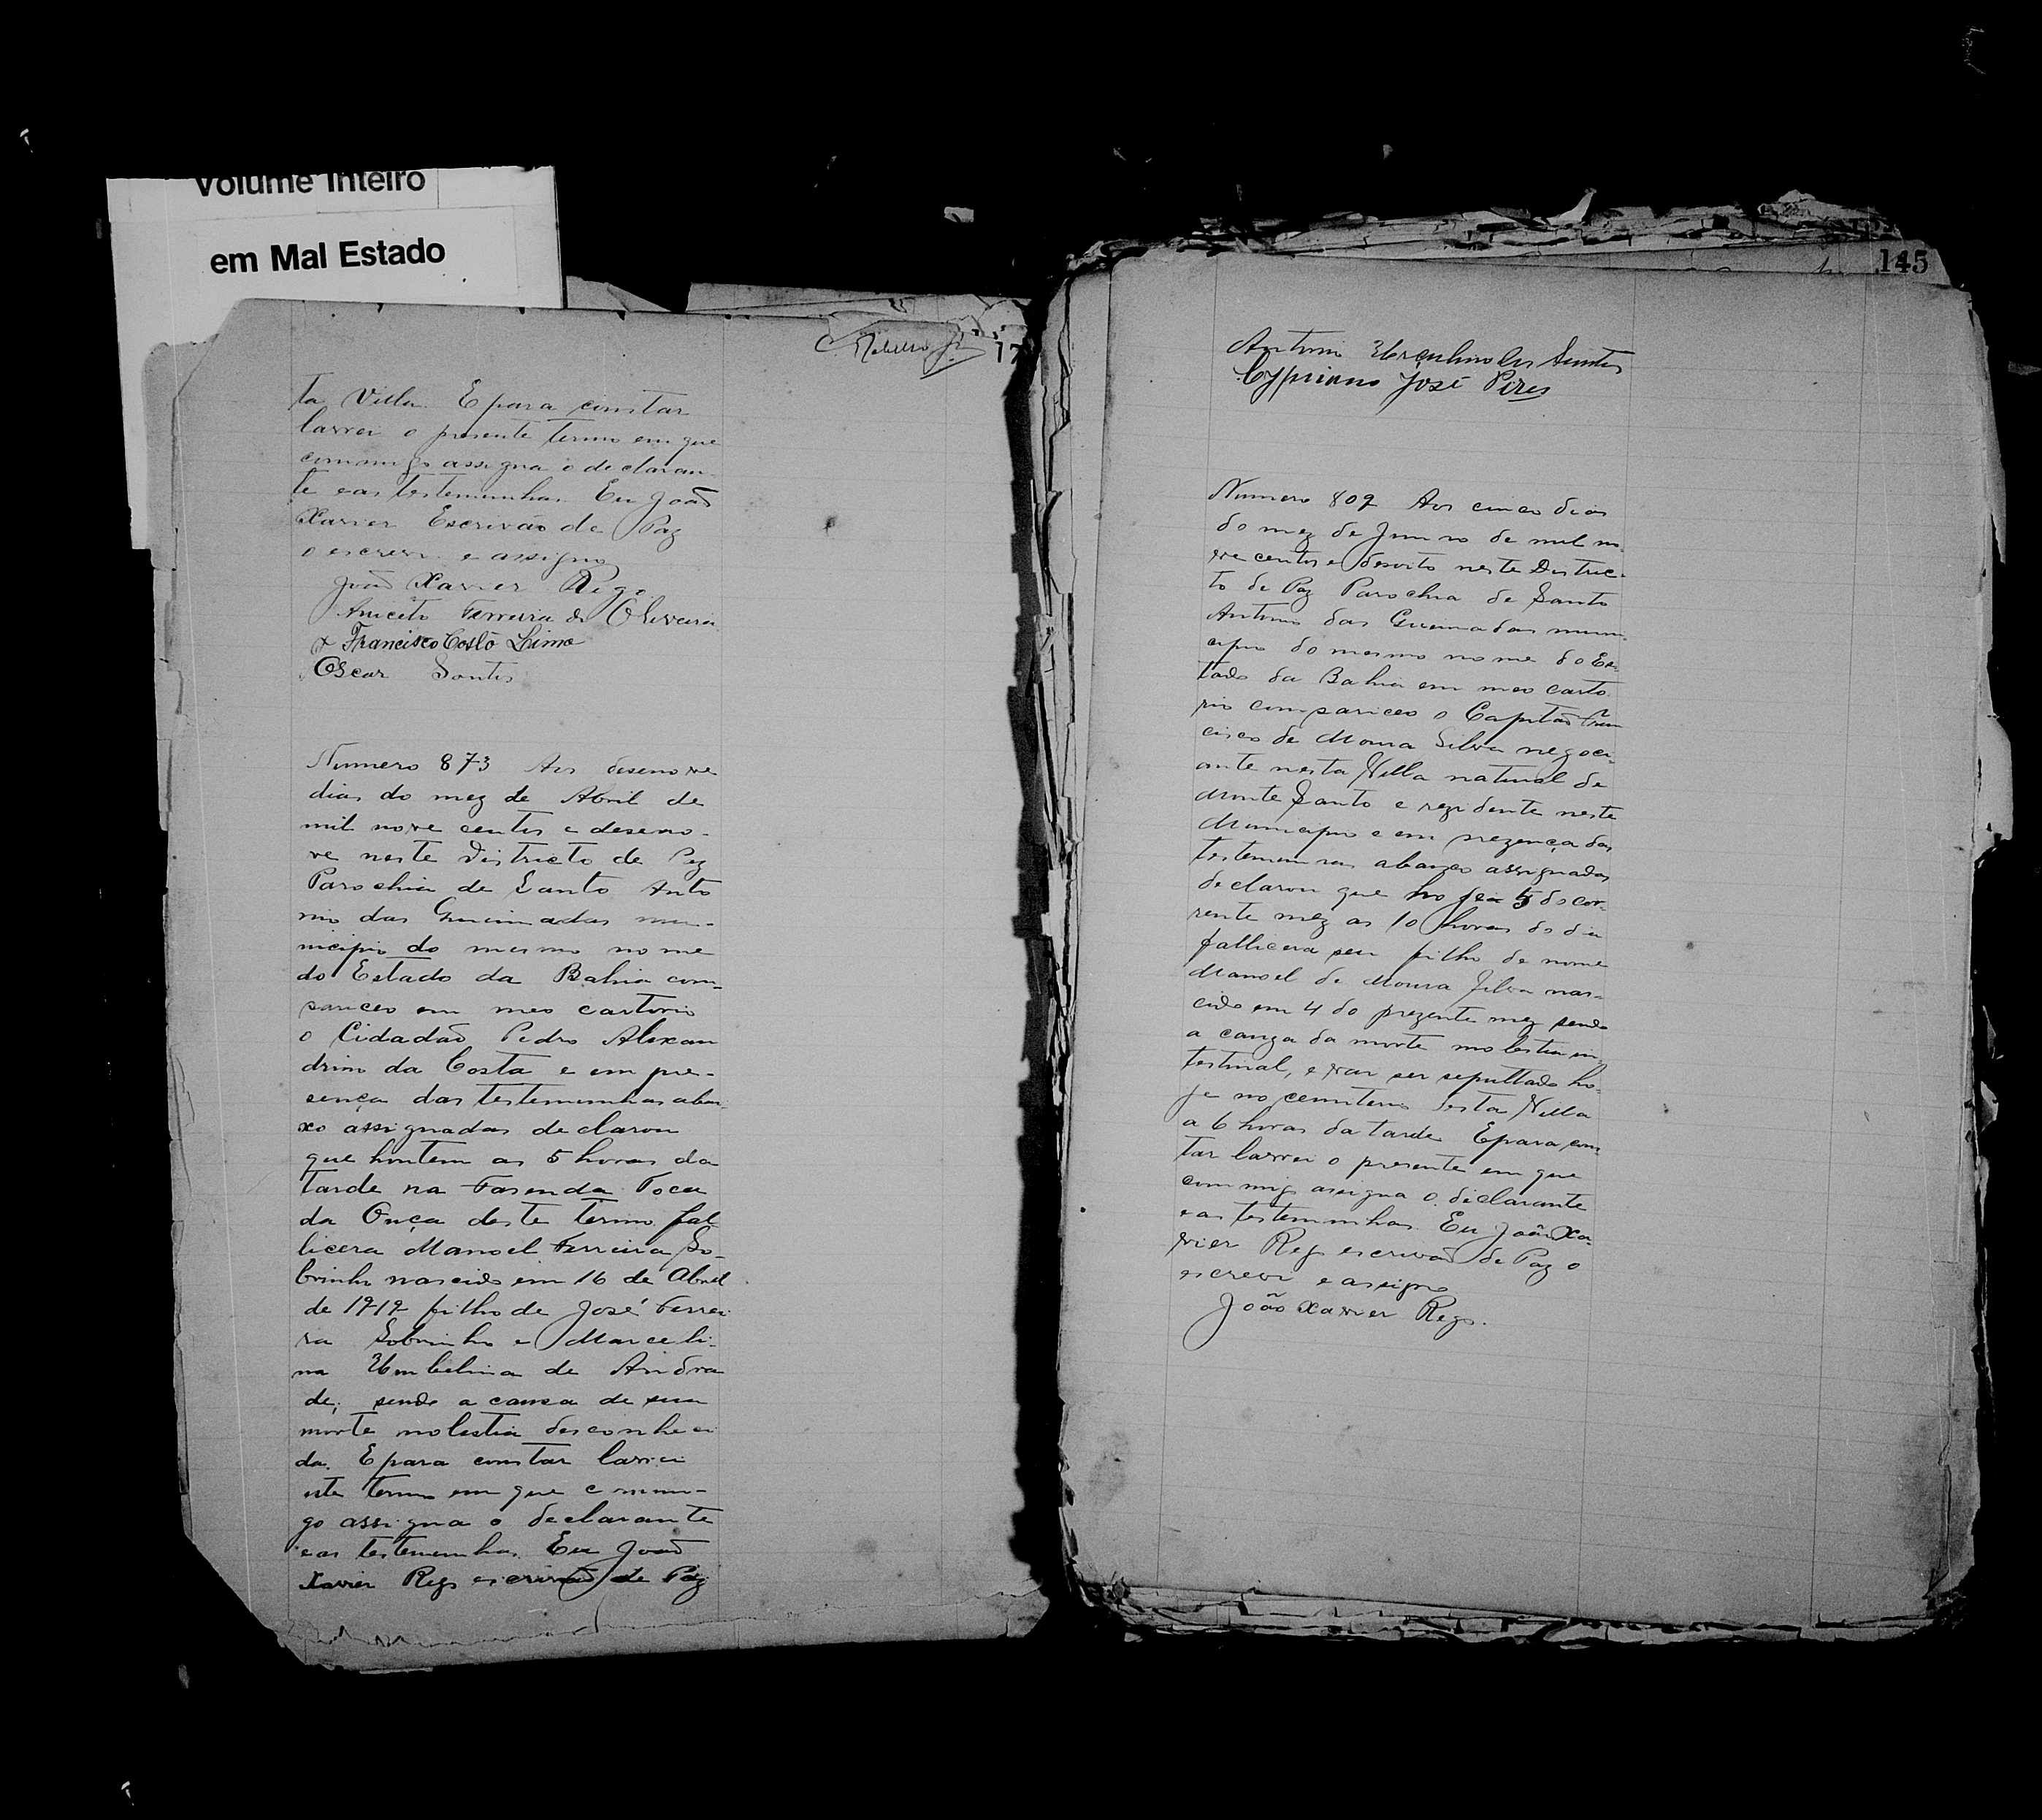 Volume Inteiro
em Mal Estado
C. Rabello Jr
17
ta Villa. E para constar
lavrei o presente termo em que
commigo assigna o declaran-
te e as testemunhas. Eu João
Xavier Escrivão de Paz
o escrevi e assigno
João Xavier Rego.
Aniceto Ferreira de Oliveira
Francisco Costo Lima
Oscar Santos
Numero 873 Aos desenove
dias do mez de Abril de
mil nove centos e deseno-
ve neste Districto de Paz
Parochia de Santo Anto
nio das Queimadas mu-
nicipio do mesmo nome
do Estado da Bahia com-
pareceo em meo cartorio
o Cidadão Pedro Alexan
drino da Costa e em pre-
sença das testemunhas abai-
xo assignadas declarou
que hontem as 5 horas da
tarde na Fasenda Toca
da Onça deste termo fal
licera Manoel Ferreira So-
brinho nascido em 16 de Abril
de 1919 filho de José Ferrei
ra Sobrinho e Marceli-
na Umbelina de Andra
de, sendo a causa de sua
morte molestia desconheci
da. E para constar lavrei
este termo em que commi-
go assigna o declarante
e as testemunhas. Eu João
Xavier Rego escrivão de Paz
145
Antonio Herculino dos Santos
Cypriano José Pires
Numero 809 Aos cinco dias
do mez de Junno de mil no-
ve centos e desoito neste Distric-
to de Paz Parochia de Santo
Antonio das Queimadas muni-
cipio do mesmo nome do Es-
tado da Bahia em meo carto
rio compariceo o Capitão Fran
cisco de Moura Silva negoci-
ante nesta Villa natural de
Monte Santo e rezidente neste
Municipio e em prezença das
testemunas abaixo assignadas
declarou que no dia 5 do cor-
rente mez as 10 horas do dia
fallicera seu filho de nome
Manoel de Moura Silva nas-
cido em 4 do prezente mez sendo
a cauza da morte molestia in-
testinal, e vae ser sepultado ho-
je no cemiterio desta Villa
a 6 horas da tarde. E para cons
tar lavrei o presente em que
commigo assigna o declarante
e as testemunhas. Eu João Xa-
vier Rego escrivão de Paz o
escrevi e assigno
João Xavier Rego.